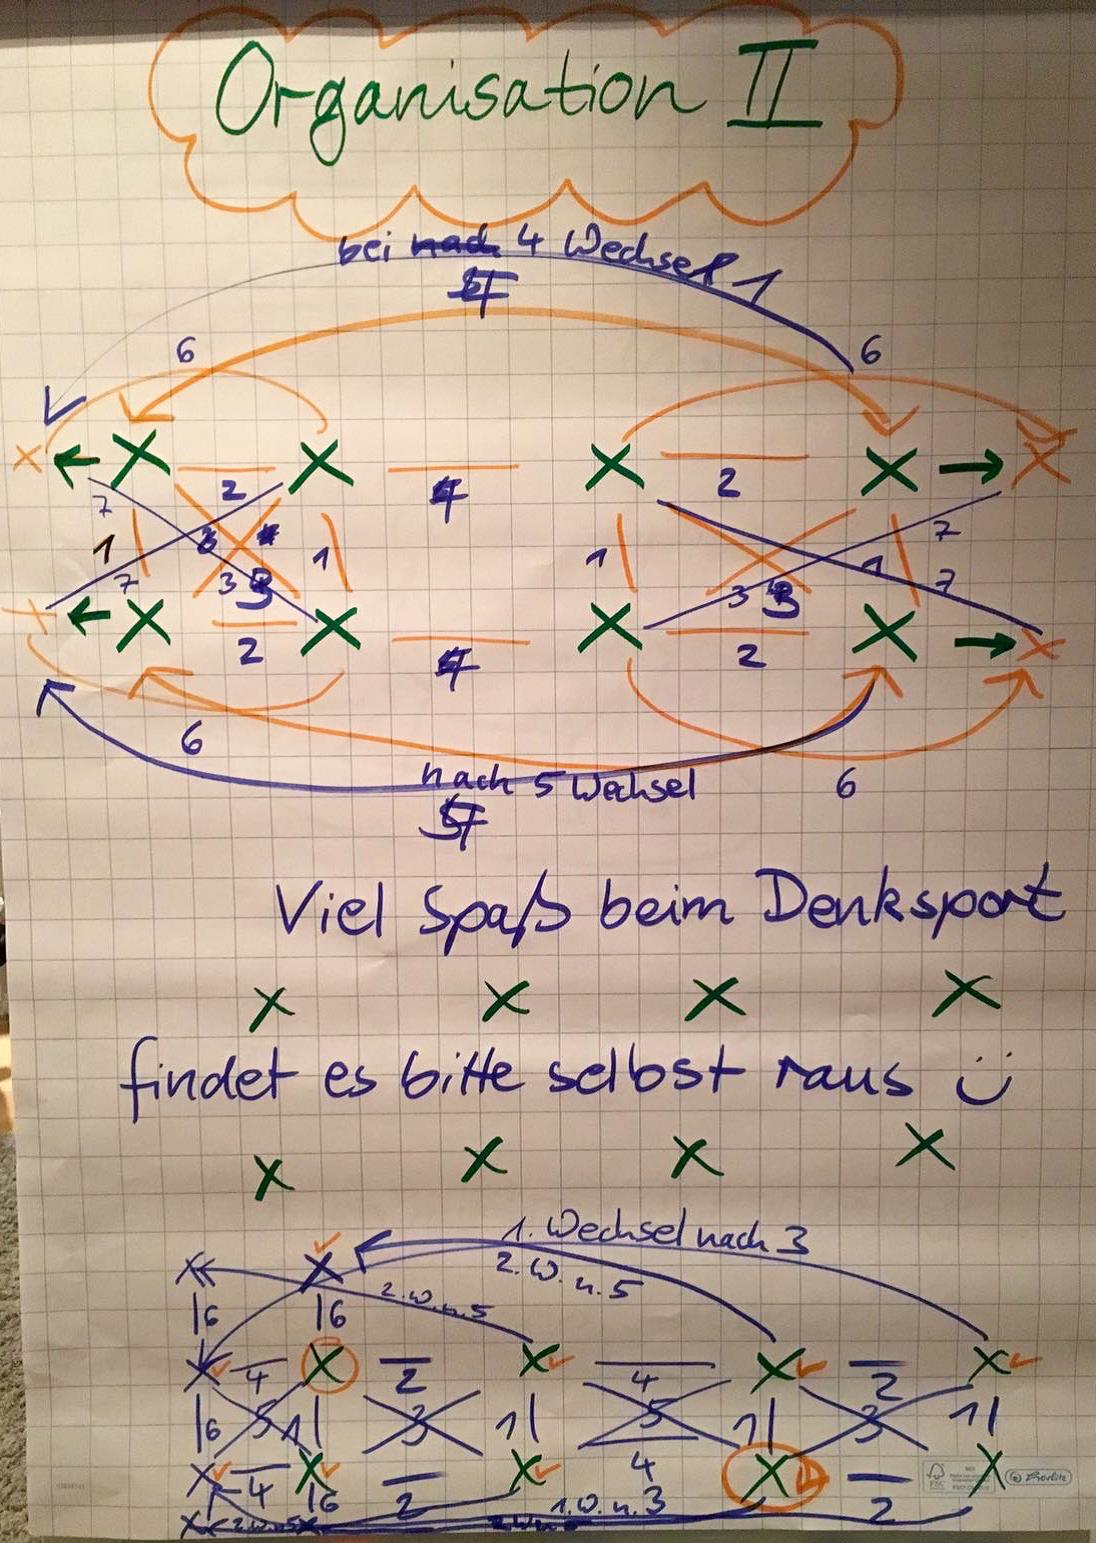 Organisation II
bei nach 4 Wechsel 1
6 6
2 4 2
7 7
1 3 1 1 3 1
7 3 3 3 7
2 4 2
6 6
nach 5 Wechsel
Viel Spaß beim Denksport
x x x x
findet es bitte selbst raus
x x x x
1. Wechsel nach 3
2. W. n. 5
2. W. n. 5
16 16
4 2 4 2
16 5 1 3 1 5 1 3 1
4 16 2 4 2
2 W n 5 1. W. n. 3
FSC